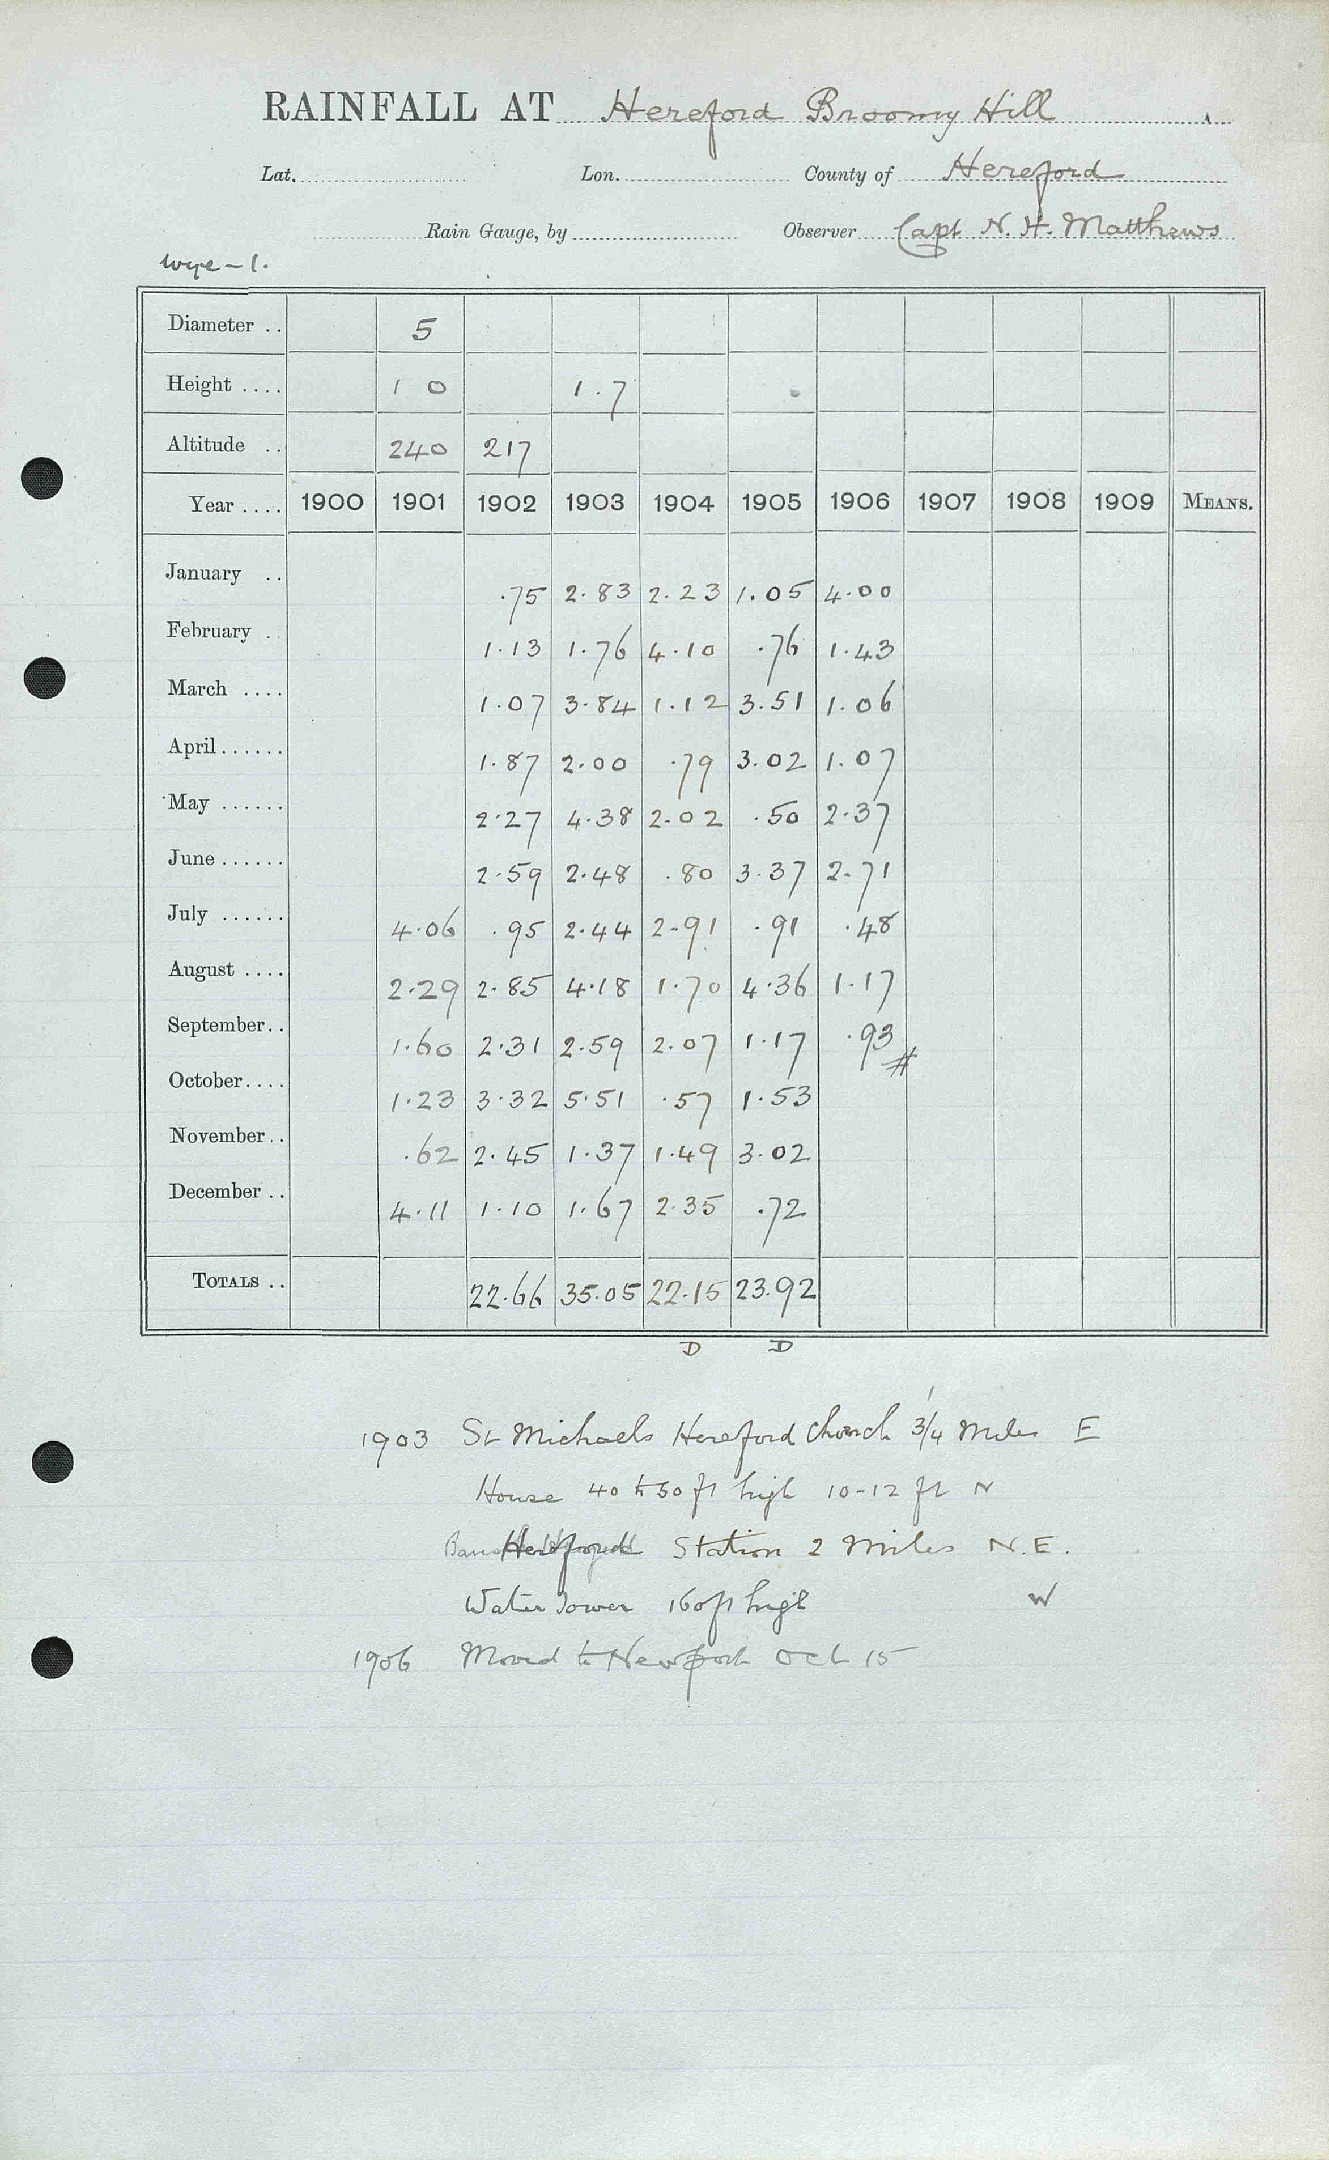 RAINFALL AT Hereford Broomy Hill
Lat. Lon. County of Hereford
Rain Gauge, by Observer Capt N. H. Matthews
Wye - 1.
Diameter .. 5
Height .... 1 0 1.7
Altitude .. 240 217
Year .... 1900 1901 1902 1903 1904 1905 1906 1907 1908 1909 MEANS.
January .. .75 2.83 2.23 1.05 4.00
February .. 1.13 1.76 4.10 .76 1.43
March .... 1.07 3.84 1.12 3.51 1.06
April ...... 1.87 2.00 .79 3.02 1.07
May ...... 2.27 4.38 2.02 .50 2.37
June ...... 2.59 2.48 .80 3.37 2.71
July ...... 4.06 .95 2.44 2.91 .91 .48
August .... 2.29 2.85 4.18 1.70 4.36 1.17
September .. 1.60 2.31 2.59 2.07 1.17 .93 #
October .... 1.23 3.32 5.51 .57 1.53
November .. .62 2.45 1.37 1.49 3.02
December .. 4.11 1.10 1.67 2.35 .72
TOTALS .. 22.66 35.05 22.15 23.92
D D
1903 St Michaels Hereford Church 3/4 Miles E
House 40 to 50 ft high 10-12 ft N
Station 2 Miles N.E.
Water Tower 160 ft high W
1906 Moved to Newport Oct 15